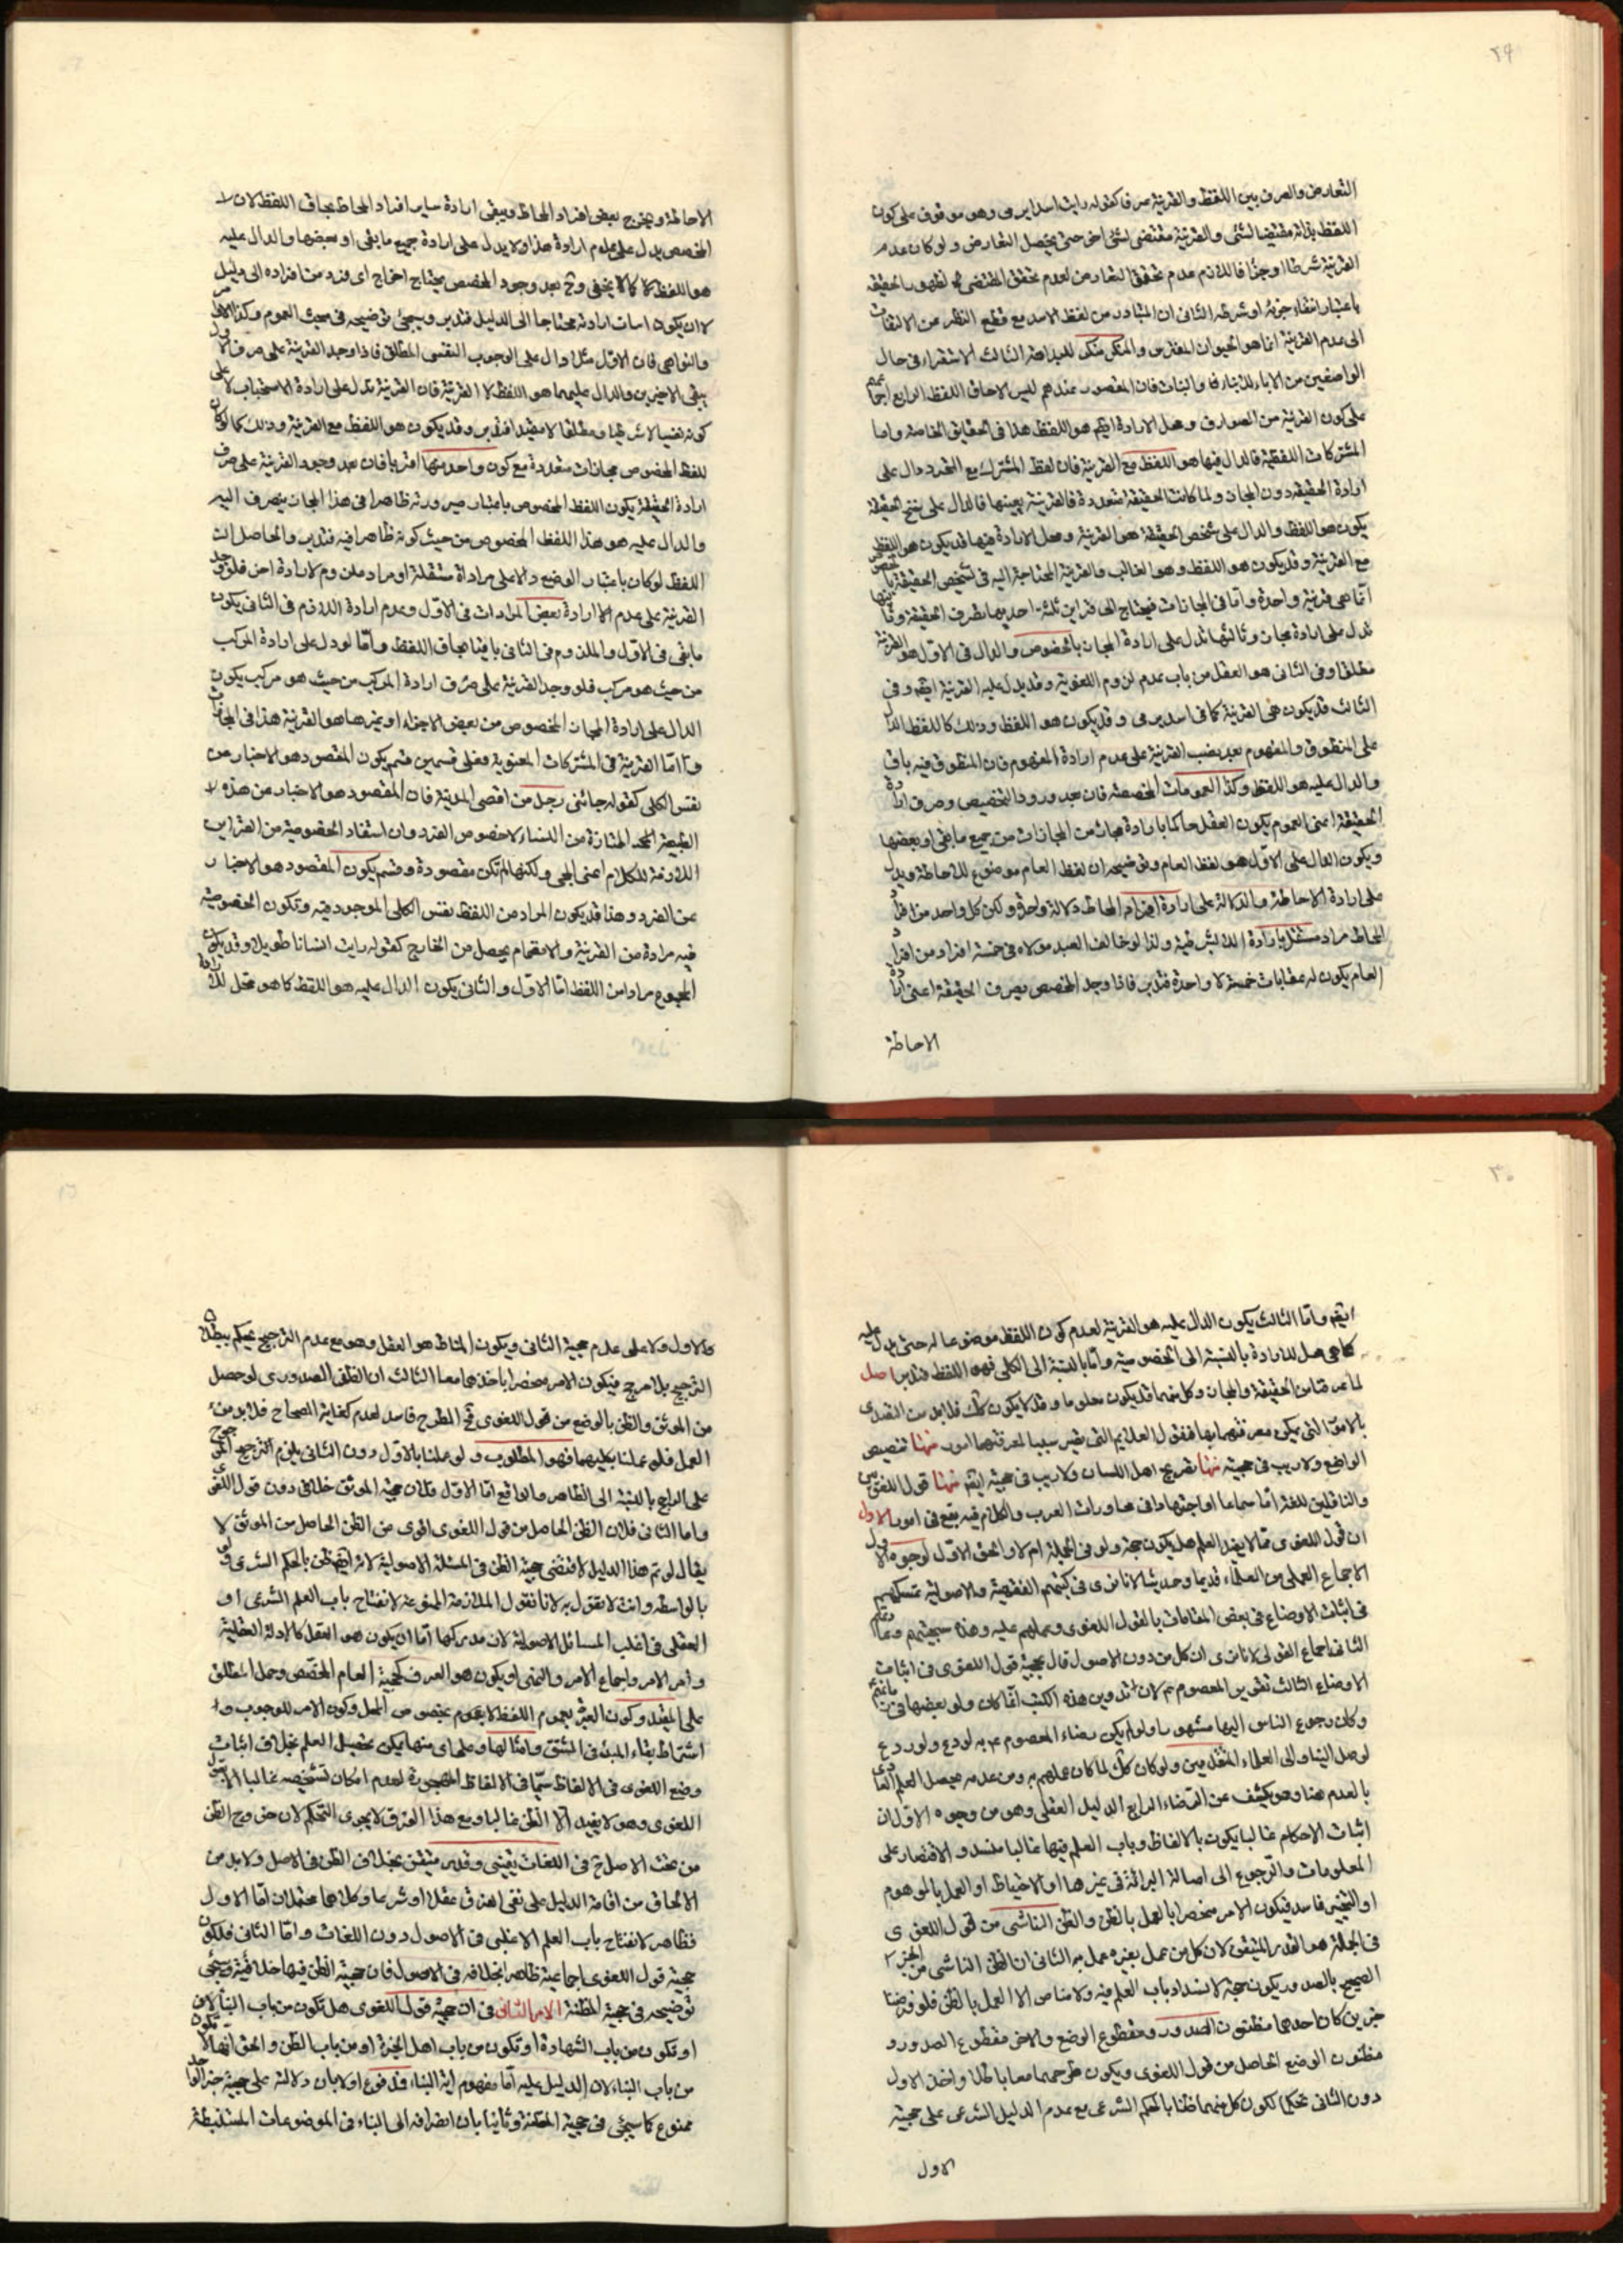 ٢٩
التعارض والصرف بين اللفظ والقرينة عرفا كقوله رايت اسدا يرمى وهو موقوف على كون
اللفظ بذاته مقتضيا لشئ والقرينة مقتضى لشئ اخر حتى يحصل التعارض ولو كان عدم
القرينة شرطا او جزءا فاللازم عدم تحقق التعارض لعدم تحقق المقتضى لظهور الحقيقة
باعتبار انتفاء جزئه او شرطه الثانى ان المتبادر من لفظ الاسد مع قطع النظر عن الالتفات
الى عدم القرينة انما هو الحيوان المفترس والمنكر منكر للبداهة الثالث الاستقراء فى حال
الواضعين من الاباء للابناء والبنات فان المقصود عندهم ليس الا حاق اللفظ الرابع
على كون القرينة من الصوارف وهل الارادة ايضم هو اللفظ هذا فى الحقايق الخاصة واما
المشتركات اللفظية فالدال فيها هو اللفظ مع القرينة فان لفظ المشترك مع التجرد دال على
ارادة الحقيقة دون المجاز ولما كانت الحقيقة متعددة فالقرينة يعينها فالدال على الحقيقة
يكون هو اللفظ والدال على شخص الحقيقة هو القرينة وهل الارادة فيها قد يكون هو اللفظ
مع القرينة وقد يكون هو اللفظ وهو الغالب والقرينة المحتاجة اليه فى تشخيص الحقيقة
انما هى قرينة واحدة واما فى المجازات فيحتاج الى قراين ثلثة احديها تصرف الحقيقة
تدل على ارادة مجاز وثالثها تدل على ارادة المجاز بالخصوص والدال فى الاول هو القرينة
مطلقا وفى الثانى هو العقل من باب عدم لزوم اللغوية وقد يدل عليه القرينة ايضم وفى
الثالث قد يكون هى القرينة كما فى اسد يرمى وقد يكون هو اللفظ وذلك كاللفظ الدال
على المنطوق والمفهوم بعد نصب القرينة على عدم ارادة المفهوم فان المنطوق فيه باق
والدال عليه هو اللفظ وكذا العمومات المخصصة فان بعد ورود التخصيص وصرف ارادة
الحقيقة اعنى العموم يكون العقل حاكما بارادة مجاز من المجازات من جميع ما بقى او بعضها
ويكون الدال على الاول هو لفظ العام وتوضيحه ان لفظ العام موضوع للاحاطة ويدل
على ارادة الاحاطة والدلالة على ارادة افراد المحاط دلالة واحدة ولكن كل واحد من افراد
المحاط مراد مستقل بارادة ولذا لو خالف العبد مولاه فى خمسة افراد من افراد
العام يكون له عقابات خمسة لا واحدة فتدبر فاذا وجد المخصص يصرف الحقيقة اعنى ارادة
الاحاطة
الاحاطة ويخرج بعض افراد المحاط ويبقى ارادة ساير افراد المحاط بحاق اللفظ لان
المخصص يدل على عدم ارادة هذا ولا يدل على ارادة جميع ما بقى او بعضها والدال عليه
هو اللفظ كما لا يخفى وح بعد وجود المخصص يحتاج اخراج اى فرد من افراده الى دليل
لا ان يكون اسات ارادته محتاجا الى الدليل فتدبر وسيجئ توضيحه فى مبحث العموم وكذا الاوامر
والنواهى فان الاول مثلا دال على الوجوب النفسى المطلق فاذا وجد القرينة على صرف الاول
يبقى الاخيرين والدال عليهما هو اللفظ لا القرينة فان القرينة تدل على ارادة الاستحباب لا على
كونه نفسيا لا شرطيا ومطلقا لا مقيدا فتدبر وقد يكون هو اللفظ مع القرينة وذلك كما لو كان
للفظ المخصوص مجازات متعددة مع كون واحد منها اقربا فان بعد وجود القرينة على صرف
ارادة الحقيقة يكون اللفظ المخصوص باعتبار صيرورته ظاهرا فى هذا المجاز ينصرف اليه
والدال عليه هو هذا اللفظ المخصوص من حيث كونه ظاهرا فيه فتدبر والحاصل ان
اللفظ لو كان باعتبار الوضع دالا على مرادات مستقلة او مراد ملزوم لارادة اخر فلو وجد
القرينة على عدم ارادة بعض المرادات فى الاول وعدم ارادة اللازم فى الثانى يكون
ما بقى فى الاول والملزوم فى الثانى باقيا بحاق اللفظ واما لو دل على ارادة المركب
من حيث هو مركب فلو وجد القرينة على صرف ارادة المركب من حيث هو مركب يكون
الدال على ارادة المجاز المخصوص من بعض الاجزاء او غيرها هو القرينة هذا فى المجازات
واما القرينة فى المشتركات المعنوية فعلى قسمين قسم يكون المقصود هو الاخبار عن
نفس الكلى كقوله جائنى رجل من اقصى المدينة فان المقصود هو الاخبار عن هذه
الطبيعة المتحد الممتازة عن النساء لا خصوص الفرد وان استفاد الخصوصية من القراين
اللازمة للكلام اعنى المجئ ولكنها لم تكن مقصودة وقسم يكون المقصود هو الاخبار
عن الفرد وهذا قد يكون المراد من اللفظ نفس الكلى الموجود فيه وتكون الخصوصية
فيه مرادة من القرينة والافهام يحصل من الخارج كقوله رايت انسانا طويلا وقد يكون
المجموع مرادا من اللفظ اما الاول والثانى يكون الدال عليه هو اللفظ كما هو محل للارادة
٣٠
ايضم واما الثالث يكون الدال عليه هو القرينة لعدم كون اللفظ موضوعا له حتى يدل عليه
كما هى محل للارادة بالنسبة الى الخصوصية واما بالنسبة الى الكلى فهو اللفظ فتدبر اصل
لما عرفنا من الحقيقة والمجاز وكل منهما قد يكون معلوما وقد لا يكون كك فلا بد من التصدى
بالامور التى يمكن معرفتهما بها فنقول العلائم التى يصير سببا لمعرفتهما امور منها تنصيص
الواضع ولا ريب فى حجيته منها تصريح اهل اللسان ولا ريب فى حجيته ايضم منها قول اللغويين
والناقلين للغة اما سماعا او اجتهادا فى محاورات العرب والكلام فيه يقع فى امور الاول
ان قول اللغوى مما لا يفيد العلم هل يكون حجة ولو فى الجملة ام لا والحق الاول لوجوه الاول
الاجماع العملى من العلماء قديما وحديثا لانا نرى فى كتبهم الفقهية والاصولية تمسكهم
فى اثبات الاوضاع فى بعض المقامات بالقول اللغوى وعملهم عليه وهذه سجيتهم
الثانى اجماع القولى لانا نرى ان كل من دون الاصول قال بحجية قول اللغوى فى اثبات
الاوضاع الثالث تقرير المعصوم عم لان تدوين هذه الكتب انما كان ولو بعضها فى
وكان رجوع الناس اليها مشهورا ولو لم يكن رضاء المعصوم عم به لردع ولو ردع
لوصل الينا والى العلماء المتقدمين ولو كان كك لما كان عملهم به ومن عدمه يحصل العلم العادى
بالعدم هنا وهو يكشف عن الرضاء الرابع الدليل العقلى وهو من وجوه الاول ان
اثبات الاحكام غالبا يكون بالالفاظ وباب العلم فيها غالبا منسد والاقتصار على
المعلومات والرجوع الى اصالة البرائة فى غيرها او الاحتياط او العمل بالموهوم
او التخيير فاسد فيكون الامر منحصرا بالعمل بالظن والظن الناشى من قول اللغوى
فى الجملة هو القدر المتيقن لان كل من عمل بغيره عمل به الثانى ان الظن الناشى من الخبر
الصحيح بالصدور يكون حجة لانسداد باب العلم فيه ولا مناص الا العمل بالظن فلو فرضنا
خبرين كان احدهما مظنون الصدور ومقطوع الوضع والاخر مقطوع الصدور و
مظنون الوضع الحاصل من قول اللغوى ويكون طرحهما معا باطلا واخذ الاول
دون الثانى تحكيم لكون كل منهما ظنا بالحكم الشرعى مع عدم الدليل الشرعى على حجية
الاول
الاول ولا على عدم حجية الثانى ويكون المناط هو العقل وهو مع عدم الترجيح يحكم ببطلان
الترجيح بلا مرجح فيكون الامر منحصرا باخذهما معا الثالث ان الظن الصدورى لو حصل
من الموثق والظن بالوضع من قول اللغوى فح الطرح فاسد لعدم كفاية الصحاح فلا بد من
العمل فلو عملنا بكليهما فهو المطلوب ولو عملنا بالاول دون الثانى يلزم الترجيح المرجوح
على الراجح بالنسبة الى الظاهر والواقع اما الاول فلان حجية الموثق خلافى دون قول اللغوى
واما الثانى فلان الظن الحاصل من قول اللغوى اقوى من الظن الحاصل من الموثق لا
يقال لو تم هذا الدليل لاقتضى حجية الظن فى المسئلة الاصولية لانه ايضم ظن بالحكم الشرعى ولو
بالواسطه وانت لا تقول به لانا نقول الملازمة ممنوعة لانفتاح باب العلم الشرعى او
العقلى فى اغلب المسائل الاصولية لان مدركها اما ان يكون هو العقل كالادلة العقلية
وامر الامر واجماع الامر والنهى او يكون هو العرف كحجية العام المخصص وحمل المطلق
على المقيد وكون العبرة بعموم اللفظ لا بعموم بخصوص المحل وكون الامر للوجوب و
اشتراط بقاء المبدء فى المشتق وامثالها وعلى اى منها يمكن تحصيل العلم بخلاف اثبات
وضع اللغوى فى الالفاظ سيما فى الالفاظ المهجورة لعدم امكان تشخيصه غالبا الا بقول
اللغوى وهو لا يفيد الا الظن غالبا ومع هذا الفرق لا يجرى التحكم لان خروج الظن
من تحت الاصل فى اللغات يقينى وقدر متيقن بخلاف الظن فى الاصل ولا بد من
الالحاق من اقامة الدليل على نفى الفرق عقلا او شرعا وكلاهما محتملان اما الاول
فظاهر لانفتاح باب العلم الاغلبى فى الاصول دون اللغات واما الثانى فلكون
حجية قول اللغوى اجماعية ظاهرا بخلافه فى الاصول فان حجية الظن فيها خلافية وسيجئ
توضيحه فى حجية المظنة الامر الثانى فى ان حجية قول اللغوى هل تكون من باب النبأ
او تكون من باب الشهادة او تكون من باب اهل الخبرة او من باب الظن والحق انها لا تكون
من باب النباء لان الدليل عليه اما مفهوم اية النباء فمدفوع اولا بان دلالته على حجية خبر الواحد
ممنوع كما سيجئ فى حجية المظنة وثانيا بان انصرافه الى النباء فى الموضوعات المستنبطة